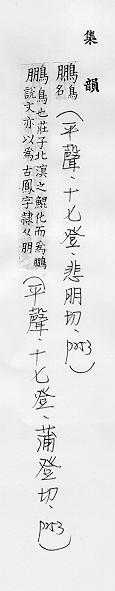 集韻
鵬鳥名(平聲、十七登、悲朋切、p253)
鵬鳥也莊子北溟之鯤化而為鵬
說文亦以為古鳳字隸从朋
(平聲、十七登、蒲登切、p253)